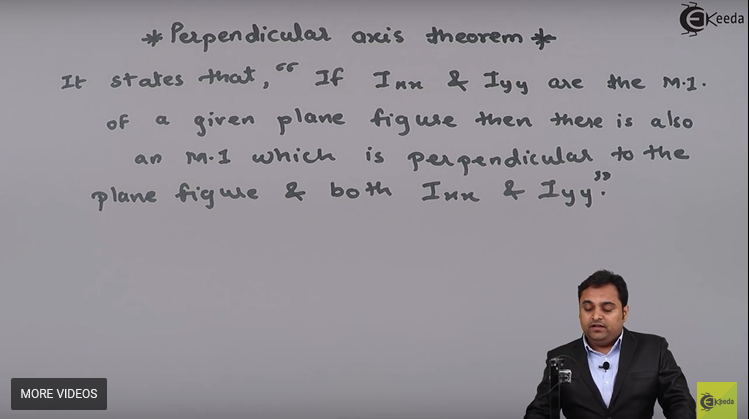 * Perpendicular axis theorem *
It states that, "If Ixx & Iyy are the M.I.
of a given plane figure then there is also
an M.I which is perpendicular to the
plane figure & both Ixx & Iyy."
EKeeda
MORE VIDEOS
EKeeda